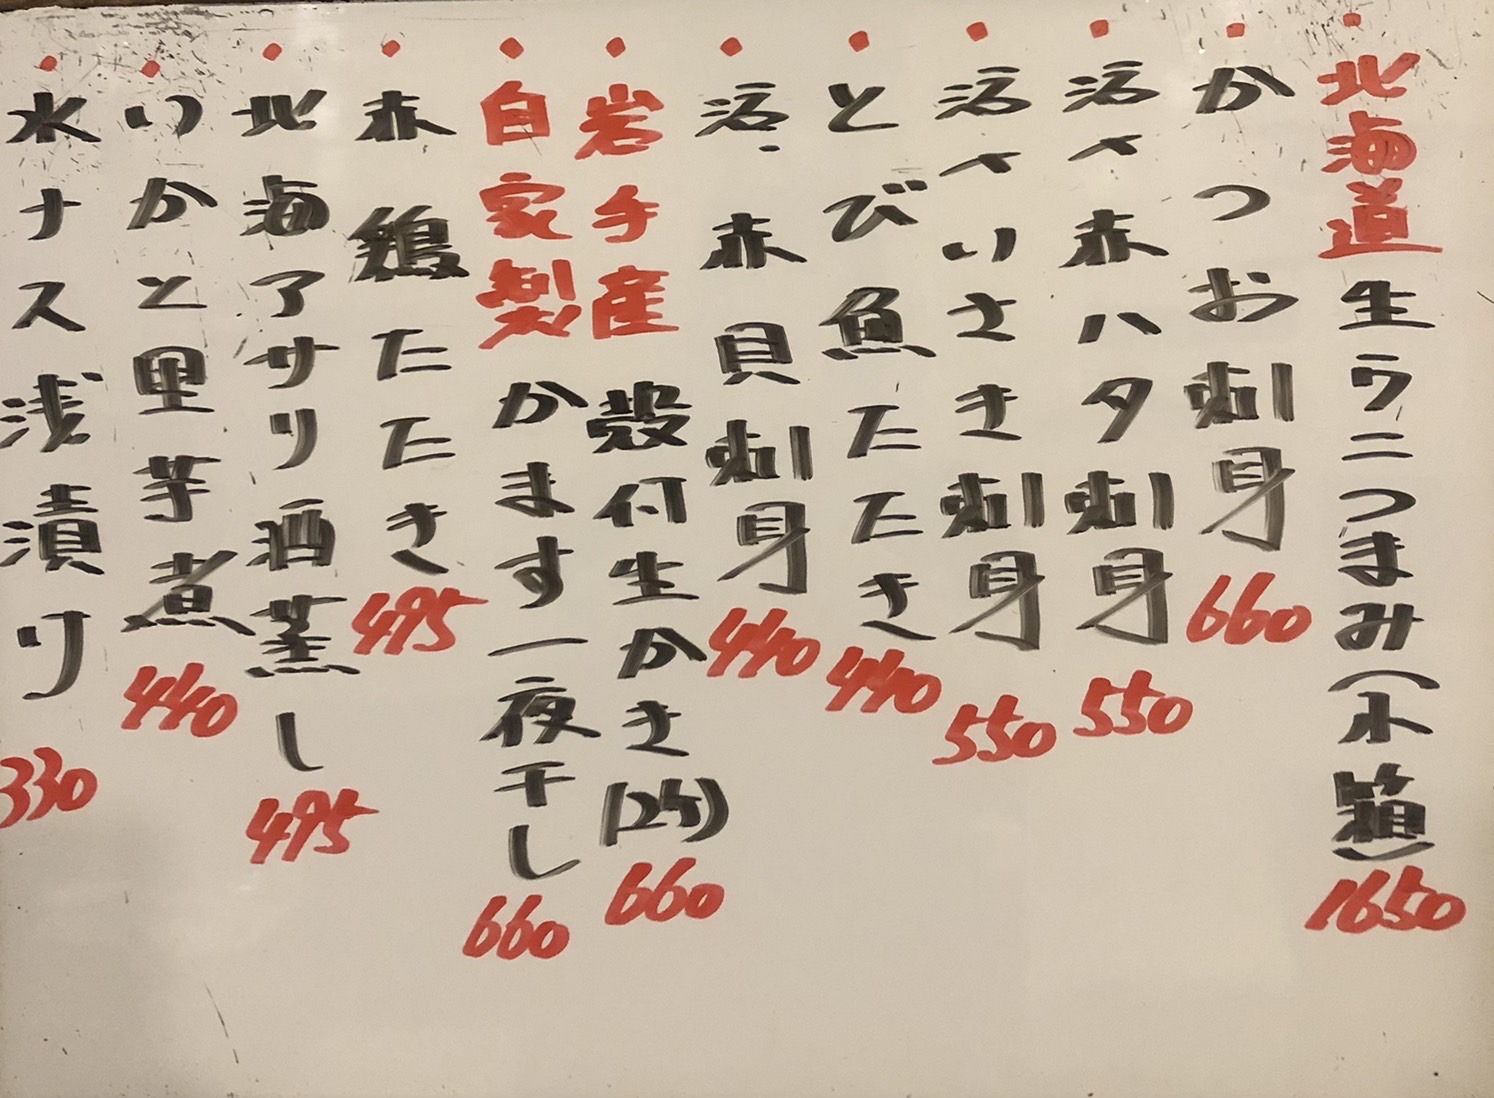 北海道生ウニつまみ(小箱)1650
かつお刺身660
活〆赤ハタ刺身550
活〆いさき刺身550
とび魚たたき440
活・赤貝刺身440
岩手産殻付生かき(2ケ)660
自家製かます一夜干し660
赤鶏たたき495
北海アサリ酒蒸し495
いかと里芋煮440
水ナス浅漬け330